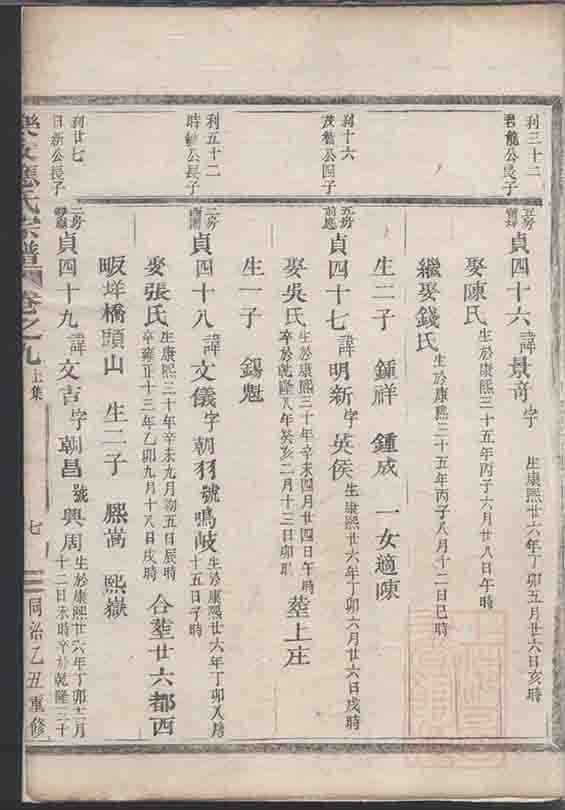 利三十二
君龍公長子
貞四十六 諱景奇字 生康熙廿六年丁卯五月廿六日亥時
娶陳氏 生於康熙三十五年丙子六月廿八日午時
繼娶錢氏 生於康熙三十五年丙子八月十二日巳時
生二子 鍾祥 鍾成 一女適陳
利十六
公四子
五房
前應
貞四十七 諱明新字英侯 生康熙廿六年丁卯六月廿六日戌時
娶吳氏 生於康熙三十年辛未四月廿四日午時
卒於乾隆八年癸亥二月十三日卯時
葬上庄
生一子 錫魁
利五十二
公長子
二房
貞四十八 諱文儀字朝羽號鳴岐 生於康熙廿六年丁卯八月
十五日子時
娶張氏 生康熙三十年辛未九月初五日辰時
卒雍正十三年乙卯九月十八日戌時
合葬廿六都西
畈垟橋頭山 生二子 熙嵩 熙嶽
利廿七
日新公長子
二房
貞四十九 諱文吉字朝昌號興周 生於康熙廿六年丁卯十二月
十二日未時卒於乾隆三十
應氏宗譜 卷之九 上集 七 同治乙丑重修